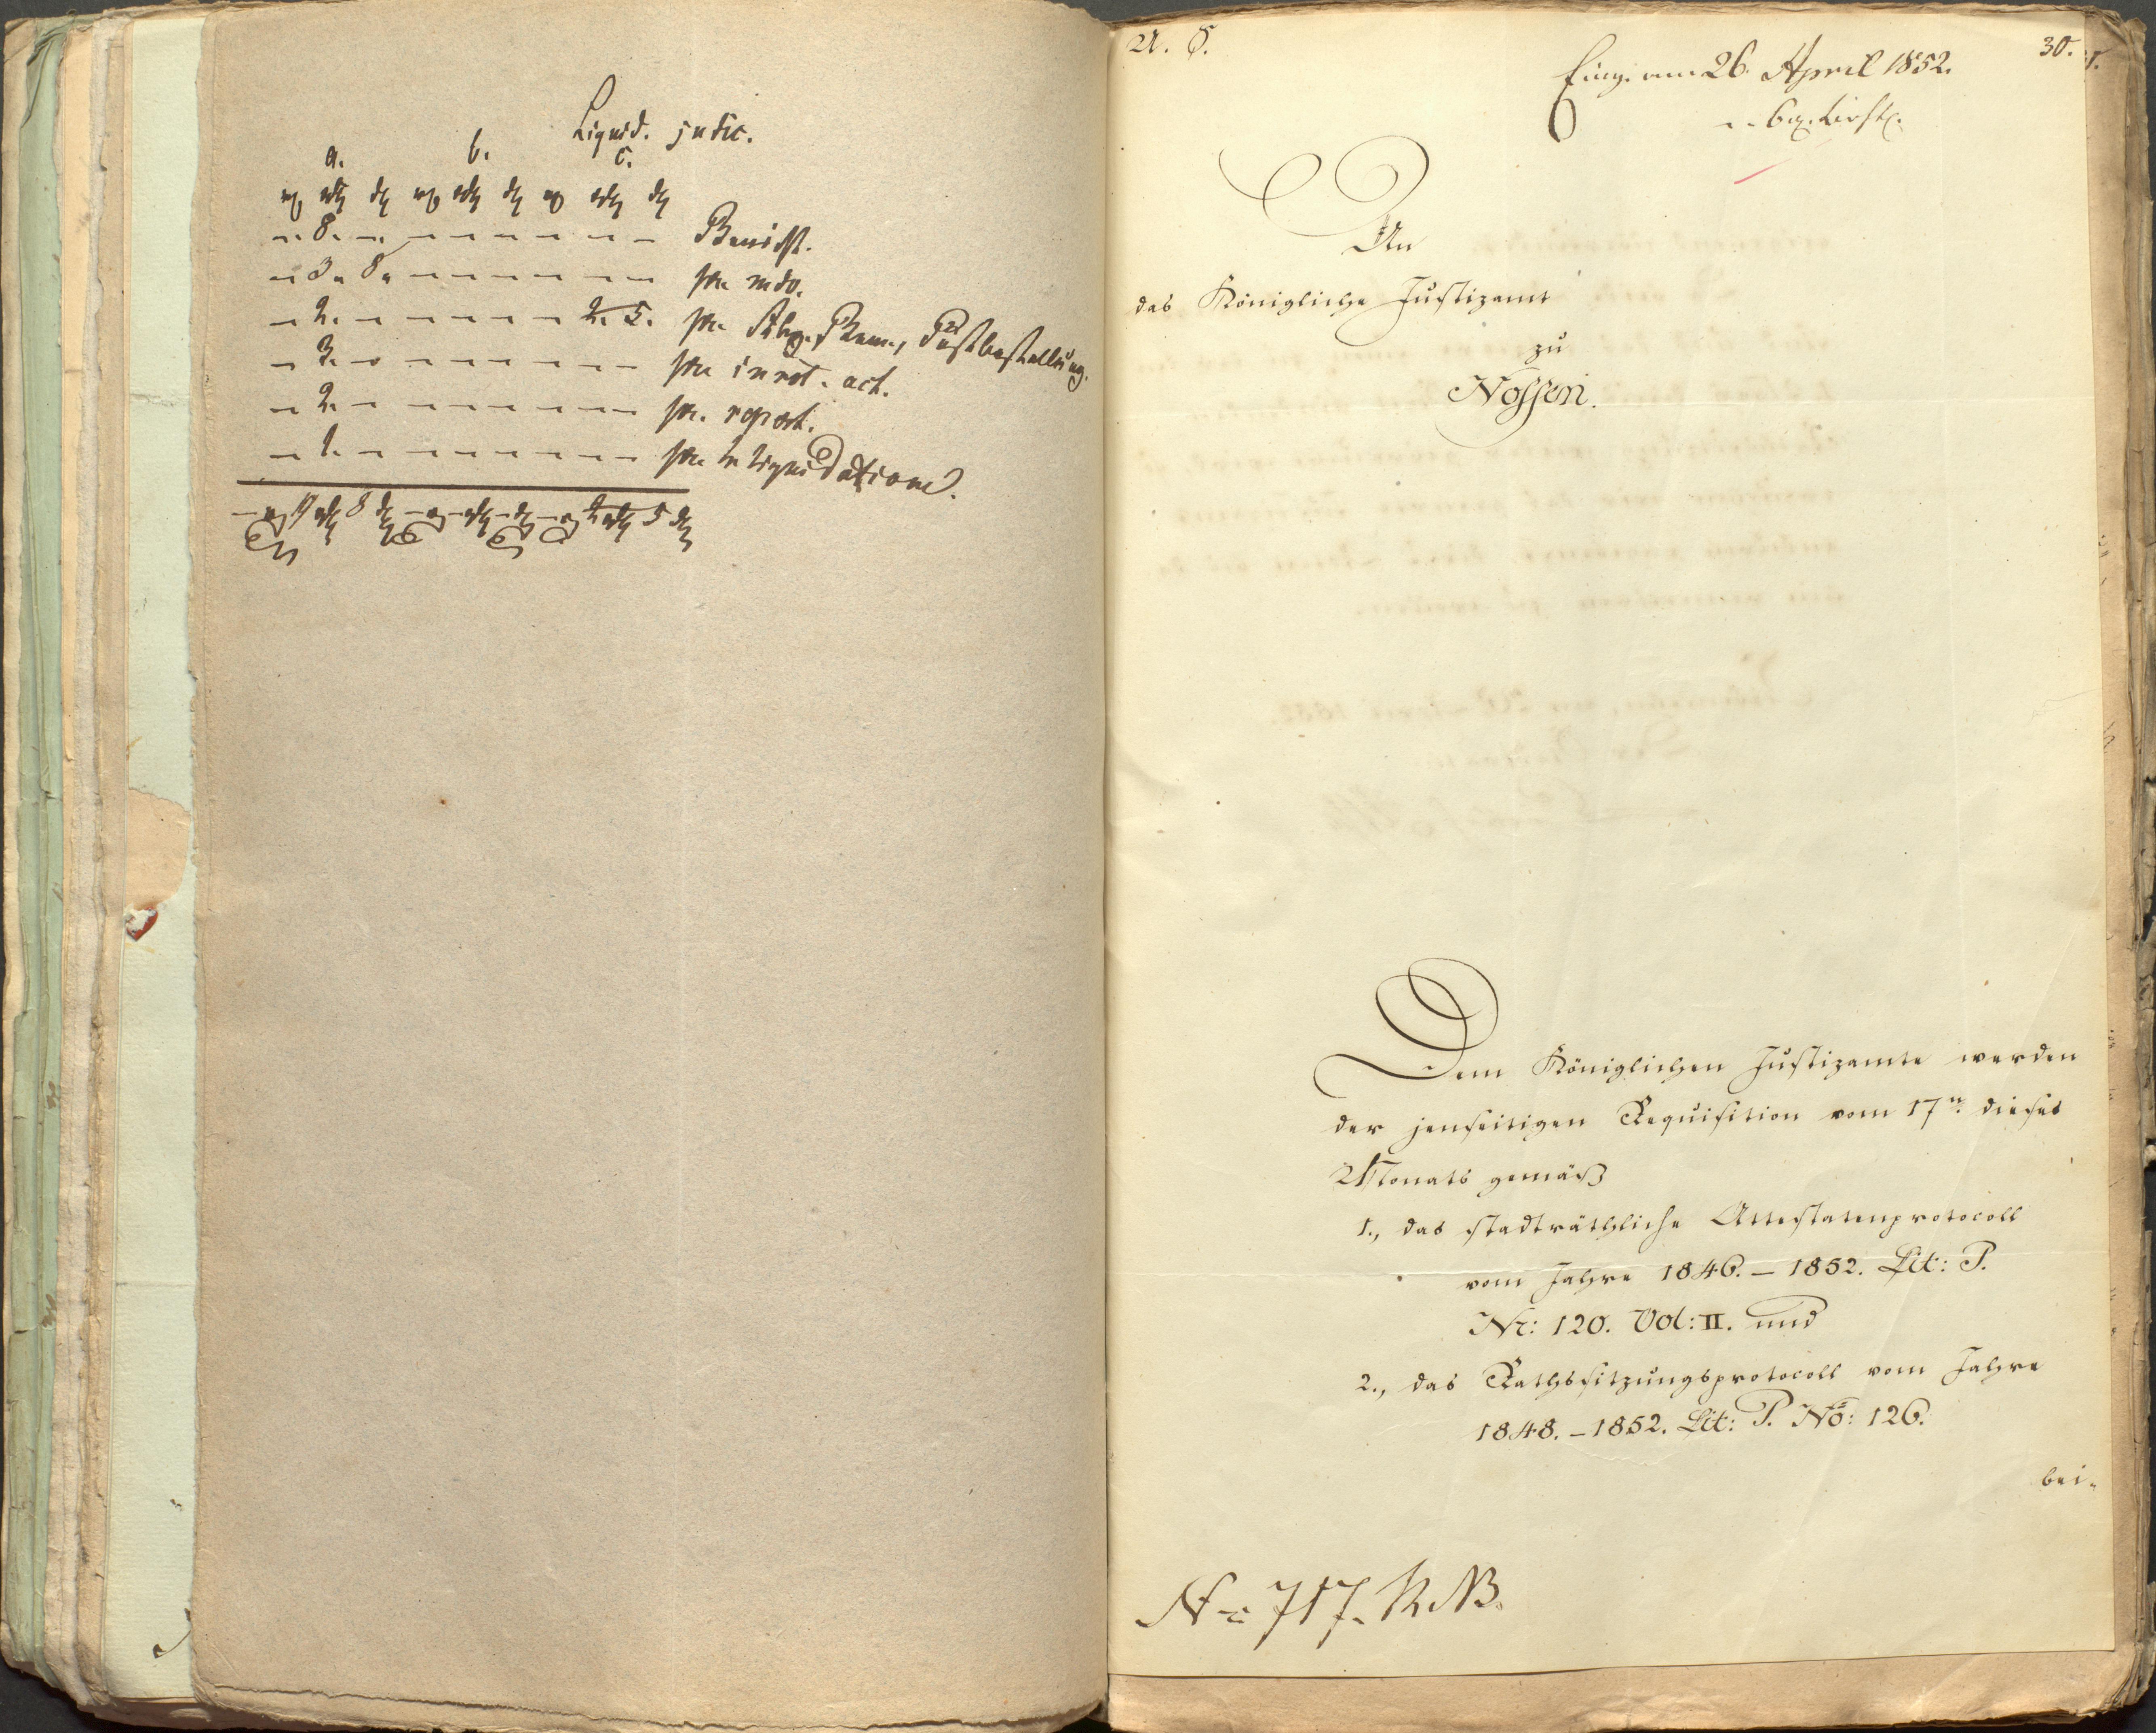 Liquid. judic.
a. b. c.
– 8. – – – – – – – Bericht.
– 3. 8. – – – – – – pro mdo.
– 2. – – – – – – 2. 5. pro Postbestellung.
– 3. – – – – – – – pro inrot. act.
– 2. – – – – – – – pro report.
– 1. – – – – – – – pro liquidatione.
A. S.
30.
Eing. am 26. April 1852.
An
das Königliche Justizamt
zu
Nossen.
Dem Königlichen Justizamte werden
der jenseitigen Requisition vom 17n. dieses
Monats gemäß
1., das stadträthliche Attestatenprotocoll
vom Jahre 1846. – 1852. Lit: P.
Nr: 120. Vol: II. und
2., das Rathssitzungsprotocoll vom Jahre
1848. – 1852. Lit: P. No: 126.
bei-
Nr 717.